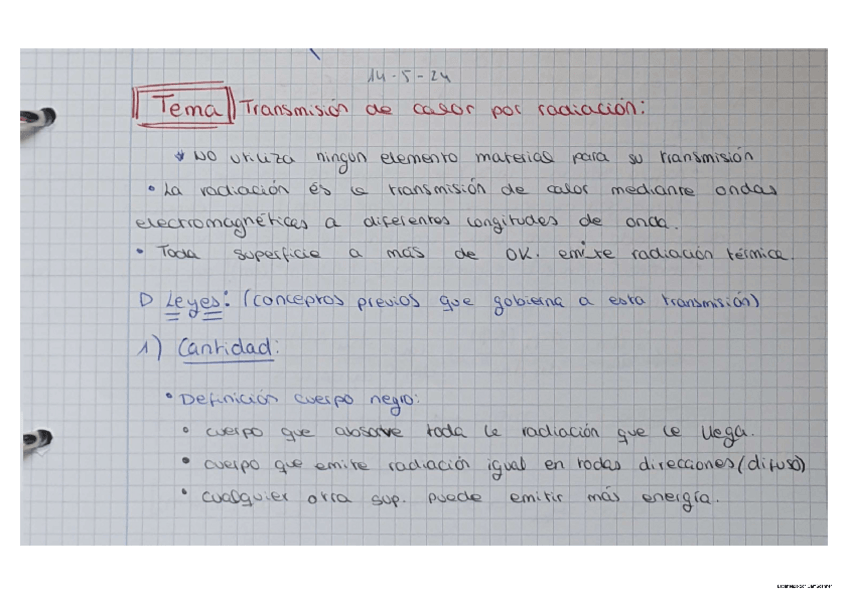 14-5-24
Tema Transmisión de calor por radiación:
No utiliza ningun elemento material para su transmisión
• La radiación és la transmisión de calor mediante ondas
electromagnéticas a diferentes longitudes de onda.
• Toda superficie a más de 0K. emite radiación térmica.
D Leyes: (conceptos previos que gobierna a esta transmisión)
1) Cantidad:
• Definición cuerpo negro:
• cuerpo que absorve toda la radiación que le llega.
• cuerpo que emite radiación igual en todas direcciones (difuso)
• cualquier otra sup. puede emitir más energía.